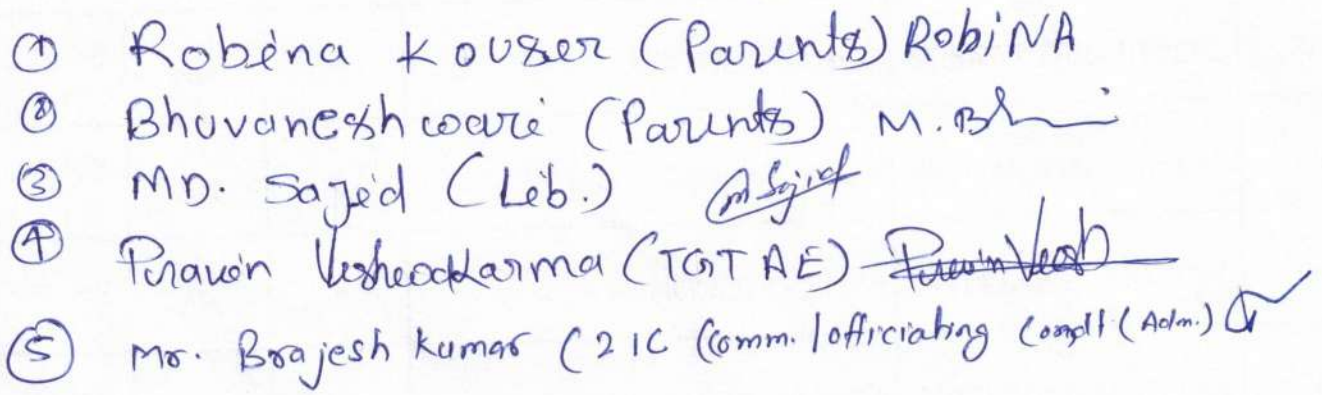 ① Robina Kouser (Parents) RobiNA
② Bhuvaneshwari (Parents) M. Bh
③ MD. Sajid (Lib.) M Sajid
④ Piravin Vishwakarma (TGT AE) Piravin Vish
⑤ Mr. Brajesh Kumar (2 IC (Comm. / officiating Comdt (Adm.)